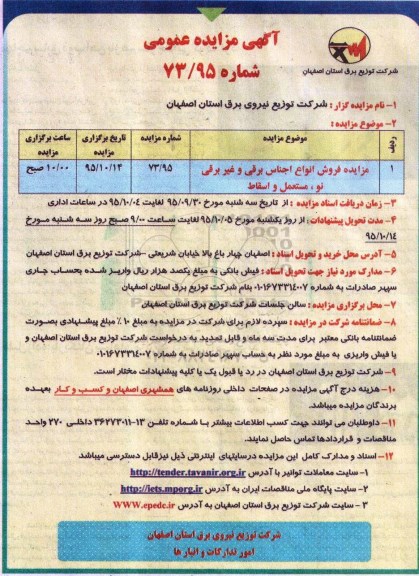 آگهی مزایده عمومی
شماره ۷۳/۹۵
شرکت توزیع برق استان اصفهان
۱- نام مزایده گزار : شرکت توزیع نیروی برق استان اصفهان
۲- موضوع مزایده :
ردیف موضوع مزایده شماره مزایده تاریخ برگزاری مزایده ساعت برگزاری مزایده
۱ مزایده فروش انواع اجناس برقی و غیر برقی نو ، مستعمل و اسقاط ۷۳/۹۵ ۹۵/۱۰/۱۴ ۱۰/۰۰ صبح
۳- زمان دریافت اسناد مزایده : از تاریخ سه شنبه مورخ ۹۵/۰۹/۳۰ لغایت ۹۵/۱۰/۰۴ در ساعات اداری
۴- مدت تحویل پیشنهادات : از روز یکشنبه مورخ ۹۵/۱۰/۰۵ لغایت ساعت ۹/۰۰ صبح روز سه شنبه مورخ
۹۵/۱۰/۱۴
۵- آدرس محل خرید و تحویل اسناد : اصفهان چهار باغ بالا خیابان شریعتی -شرکت توزیع برق استان اصفهان
۶- مدارک مورد نیاز جهت تحویل اسناد : فیش بانکی به مبلغ یکصد هزار ریال واریز شده بحساب جاری
سپهر صادرات به شماره ۰۱۰۱۶۷۳۳۱۴۰۰۷ بنام شرکت توزیع برق استان اصفهان
۷- محل برگزاری مزایده : سالن جلسات شرکت توزیع برق استان اصفهان
۸- ضمانتنامه شرکت در مزایده : سپرده لازم برای شرکت در مزایده به مبلغ ۱۰ ٪ مبلغ پیشنهادی بصورت
ضمانتنامه بانکی معتبر برای مدت سه ماه و قابل تمدید به درخواست شرکت توزیع برق استان اصفهان و
یا فیش واریزی به مبلغ مورد نظر به حساب سپهر صادرات به شماره ۰۱۰۱۶۷۳۳۱۴۰۰۷
۹- شرکت توزیع برق استان اصفهان در رد یا قبول یک یا کلیه پیشنهادات مختار است.
۱۰- هزینه درج آگهی مزایده در صفحات داخلی روزنامه های همشهری اصفهان و کسب و کار بعهده
برندگان مزایده میباشد.
۱۱- داوطلبان می توانند جهت کسب اطلاعات بیشتر با شماره تلفن ۱۳-۳۶۲۷۳۰۱۱ داخلی ۲۷۰ واحد
مناقصات و قراردادها تماس حاصل نمایند.
۱۲- اسناد و مدارک کامل این مزایده درسایتهای اینترنتی ذیل نیزقابل دسترسی میباشد
۱- سایت معاملات توانیر با آدرس http://tender.tavanir.org.ir
۲- سایت پایگاه ملی مناقصات ایران به آدرس http://iets.mporg.ir
۳- سایت شرکت توزیع برق استان اصفهان به آدرس WWW.epedc.ir
شرکت توزیع نیروی برق استان اصفهان
امور تدارکات و انبار ها